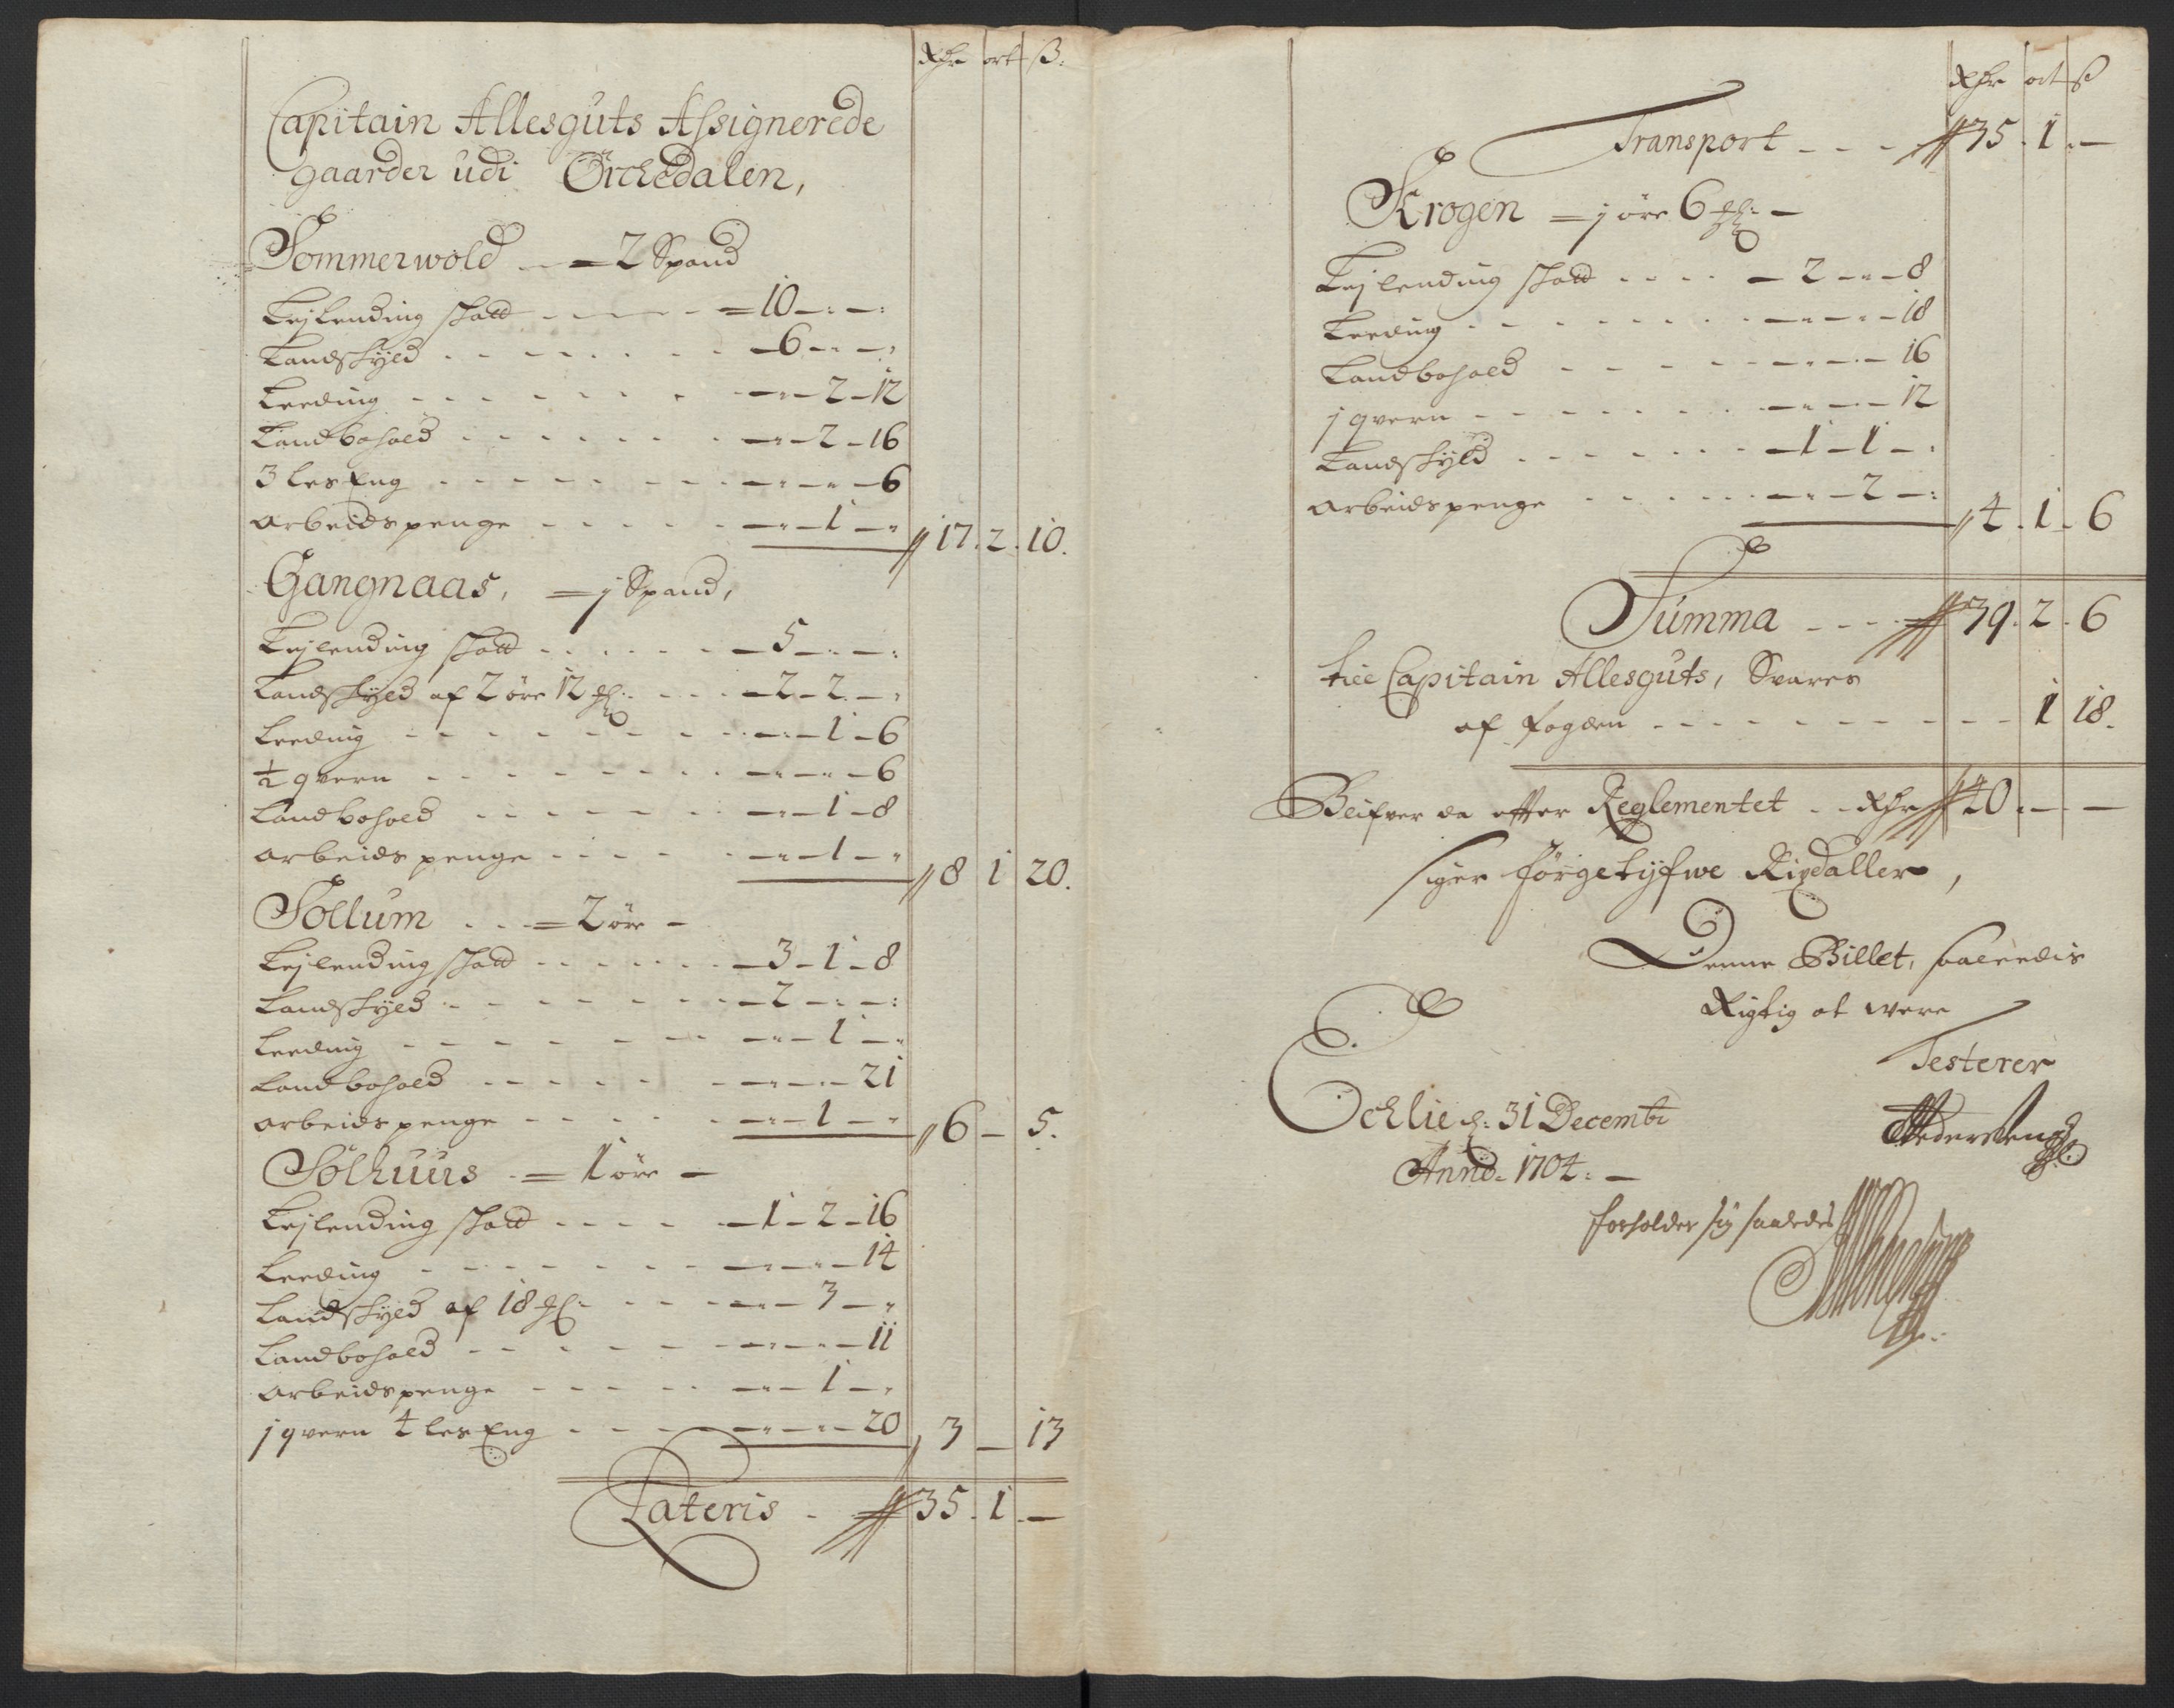 Rdr ort ß:
Capitain Allesguts Assignerede
gaarder udi Örchedalen,
Sommerwold - = 2 Spand
Lejlending skatt - - - - = 10 - : - :
Landskyld - - - - - - - 6 - - - "
Leeding - - - - - - - - " - 2 - 12
Landbohold - - - - - - - " - 2 - 16
3 les Eng - - - - - - - " - " - 6
arbeidspenge - - - - - - " - 1 - " 17 . 2 . 10.
Gangnaas, = j Spand,
Lejlending skatt - - - - - 5 - : - :
Landskyld af 2 öre 12 - - - 2 - 2 - "
Leeding - - - - - - - - " - 1 - 6
½ qvern - - - - - - - - " - " - 6
Landbohold - - - - - - - " - 1 - 8
arbeids penge - - - - - - " - 1 - " 8 1 20.
Sollum - - = 2 öre -
Lejlending skatt - - - - - 3 - 1 - 8
Landskyld - - - - - - - 2 - : - :
Leeding - - - - - - - - " - 1 - "
Landbohold - - - - - - - " - " - 21
arbeidspenge - - - - - - " - 1 - " 6 - 5.
Solhuus - = 1 öre -
Lejlending skatt - - - - - 1 - 2 - 16
Leeding - - - - - - - - " - " - 14
Landskyld af 18 - - - - " - 3 - "
Landbohold - - - - - - - " - " - 11
arbeidspenge - - - - - - " - 1 - "
j qvern 4 les Eng - - - - " - " - 20 3 - 13
Lateris - 35 . 1 . -
Rdr ort ß
Transport - - - 35 . 1 . -
Krogen = j öre 6 -
Lejlending skatt - - - - - 2 - " - 8
Leeding - - - - - - - - " - " - 18
Landbohold - - - - - - - " - " - 16
j qvern - - - - - - - - " - " - 12
Landskyld - - - - - - - 1 - 1 - :
arbeidspenge - - - - - - " - 2 - : 4 . 1 . 6
Summa - - - 39 . 2 . 6
till Capitain Allesguts, Svares
af fogden - - - - - - - - - 1 18.
Blifver da efter Reglementet - - Rdr 40 . - . -
siger förgetyfwe Rixdaller,
Denne Billet, saaledis
Rigtig at were
Testerer
Oehlie d: 31 Decembr
Anno. 1704: -
forholder sig saaledes